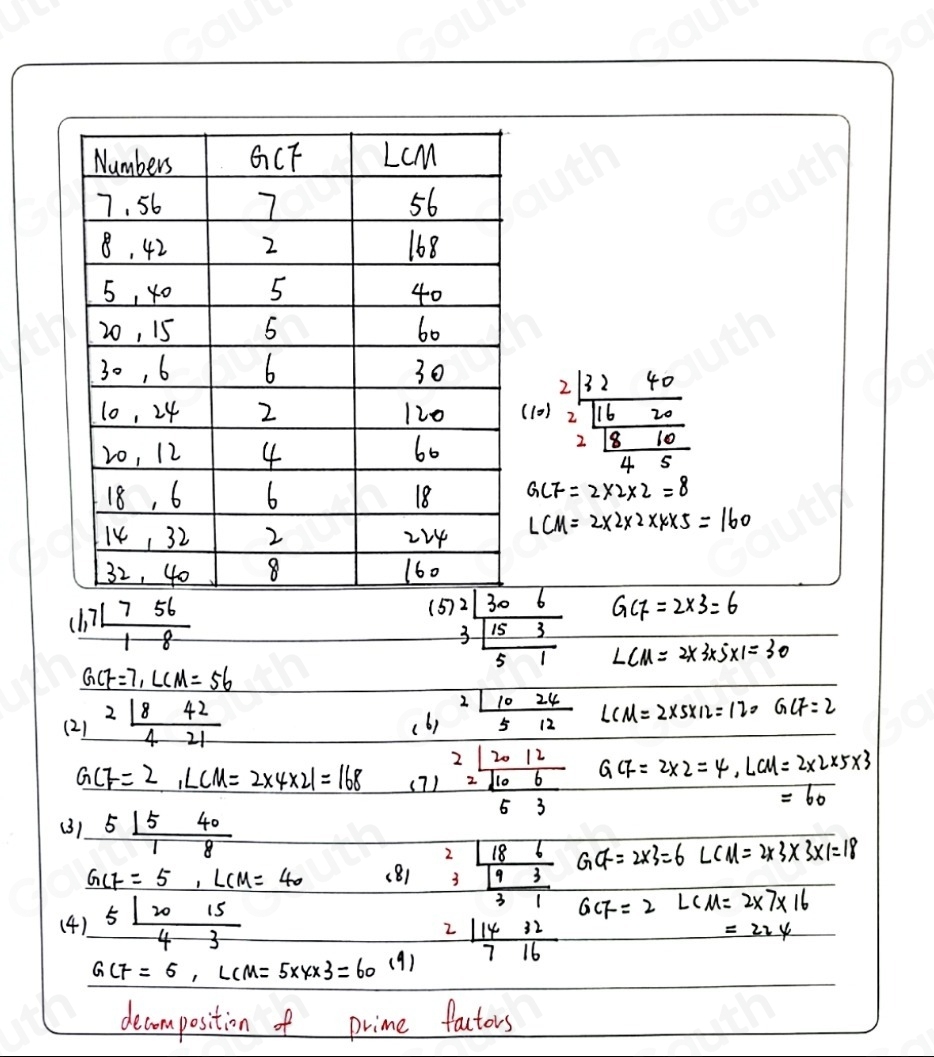 Numbers GCF LCM
7, 56 7 56
8, 42 2 168
5, 40 5 40
20, 15 5 60
30, 6 6 30
10, 24 2 120
20, 12 4 60
18, 6 6 18
14, 32 2 224
32, 40 8 160
(10) 2 32 40
2 16 20
2 8 10
4 5
GCF = 2×2×2 = 8
LCM = 2×2×2×4×5 = 160
(1) 7 7 56
1 8
GCF=7, LCM = 56
(2) 2 8 42
4 21
GCF = 2, LCM = 2×4×21 = 168
(3) 5 5 40
1 8
GCF = 5, LCM = 40
(4) 5 20 15
4 3
GCF = 5, LCM = 5×4×3 = 60
(5) 2 30 6
3 15 3
5 1
GCF = 2×3 = 6
LCM = 2×3×5×1 = 30
(6) 2 10 24
5 12
LCM = 2×5×12 = 120 GCF = 2
(7) 2 20 12
2 10 6
5 3
GCF = 2×2 = 4, LCM = 2×2×5×3
= 60
(8) 2 18 6
3 9 3
3 1
GCF = 2×3 = 6 LCM = 2×3×3×1 = 18
(9) 2 14 32
7 16
GCF = 2 LCM = 2×7×16
= 224
decomposition of prime factors
Gauth